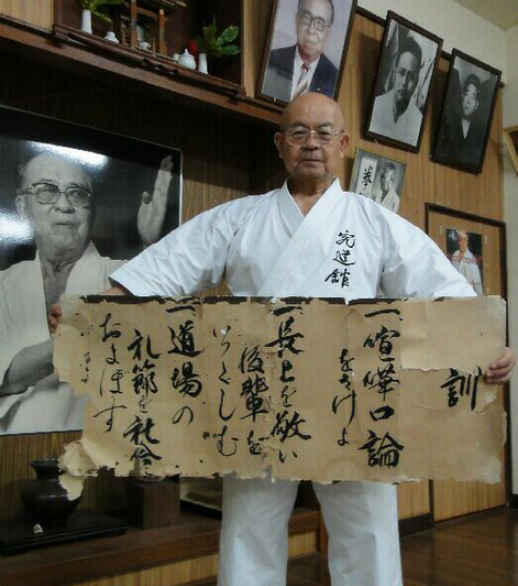 訓
一喧嘩口論
をさけよ
一長上を敬い
後輩を
いつくしむ
一道場の
礼節を社会
およぼす
究道館